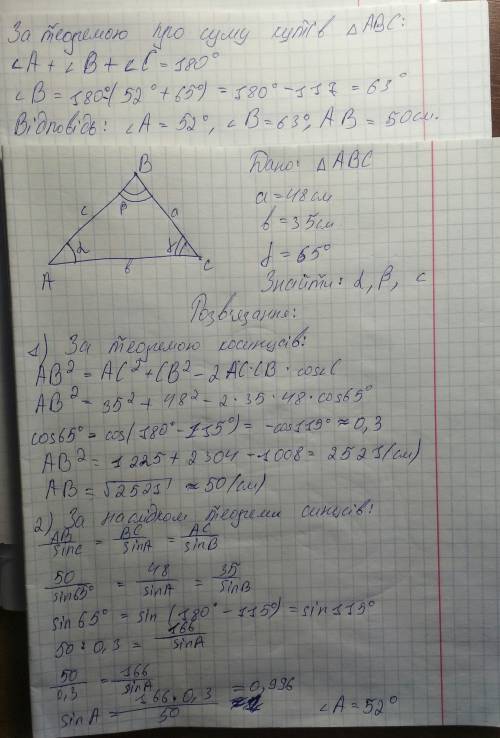 За теоремою про суму кутів △ABC:
∠A + ∠B + ∠C = 180°
∠B = 180°(52° + 65°) = 180° - 117 = 63°
Відповідь: ∠A = 52°, ∠B = 63°, AB = 50см.
B
Дано: △ABC
a = 48см
c
β
a
в = 35см
γ = 65°
α
γ
A
в
C
Знайти: α, β, c
Розв'язання:
1) За теоремою косинусів:
AB² = AC² + CB² - 2AC·CB · cos∠C
AB² = 35² + 48² - 2·35·48·cos65°
cos65° = cos(180° - 115°) = -cos115° ≈ 0,3
AB² = 1225 + 2304 - 1008 = 2521(см)
AB = √2521 ≈ 50(см)
2) За наслідком теореми синусів:
AB/sinC = BC/sinA = AC/sinB
50/sin65° = 48/sinA = 35/sinB
sin65° = sin(180° - 115°) = sin115°
50 : 0,3 = 166/sinA
50/0,3 = 166/sinA
sinA = 166·0,3/50 = 0,996
∠A = 52°